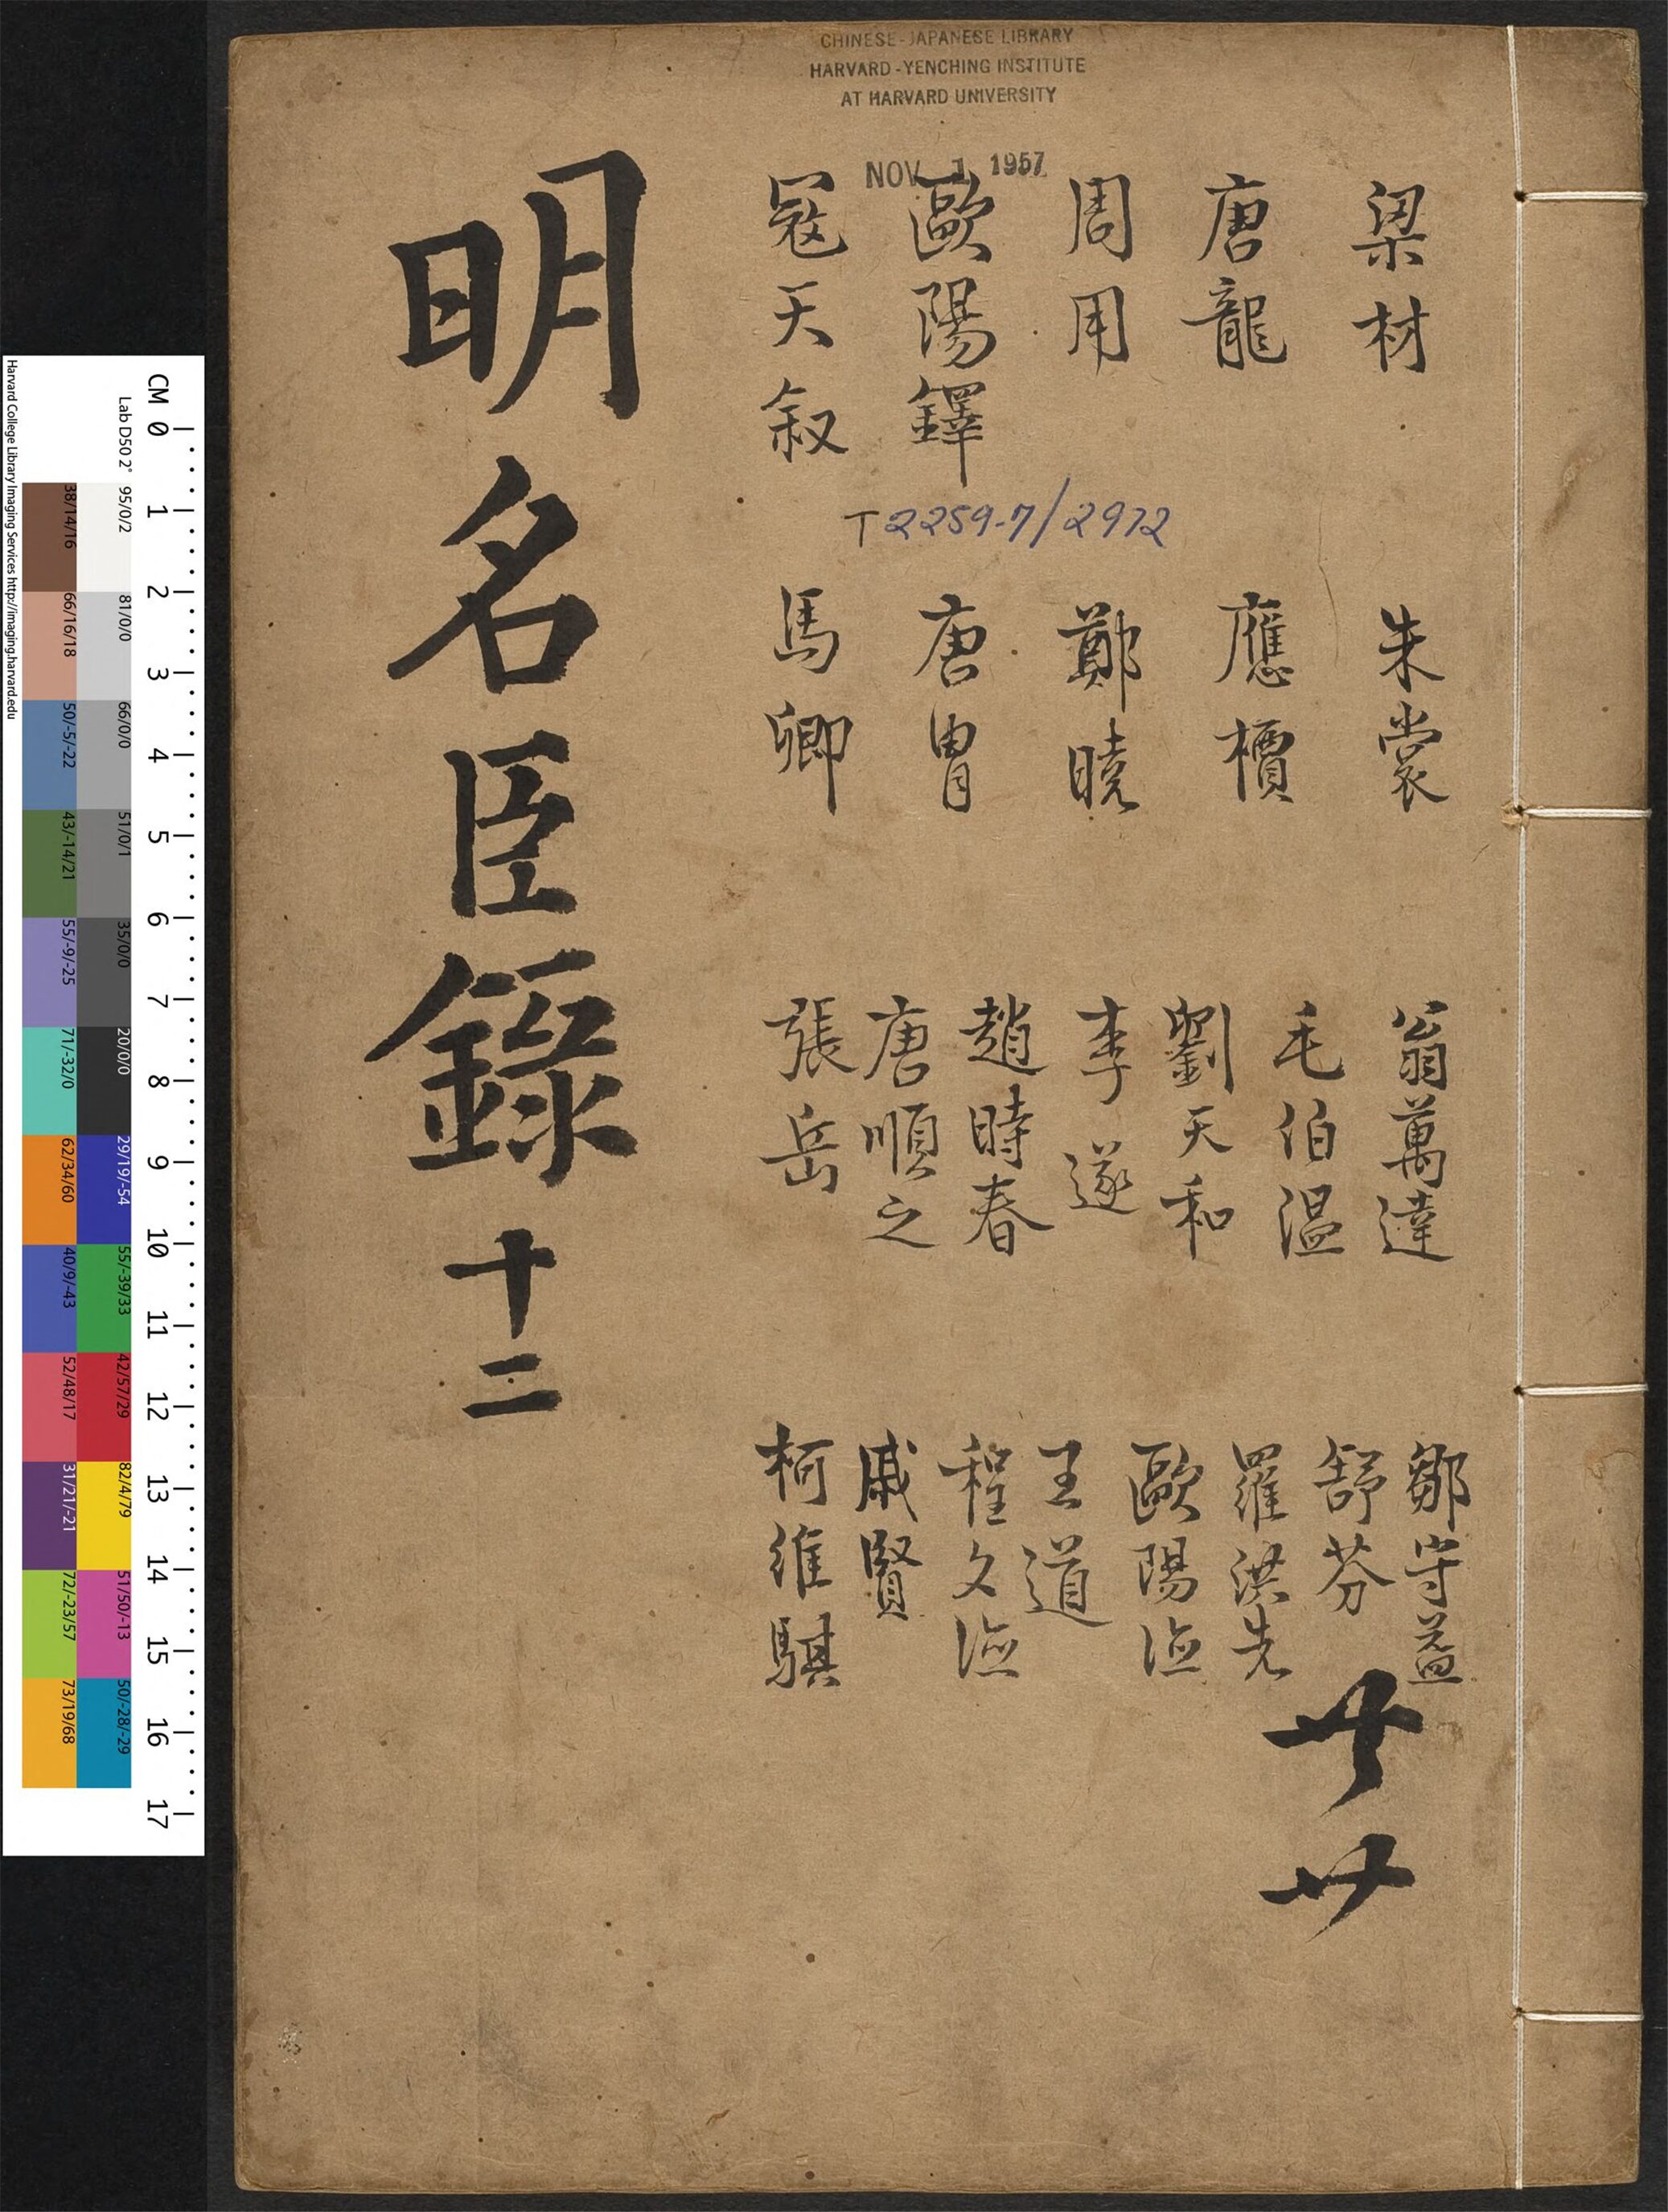 CHINESE-JAPANESE LIBRARY
HARVARD-YENCHING INSTITUTE
AT HARVARD UNIVERSITY
NOV 1 1957
梁材
唐龍
周用
歐陽鐸
冦天叙
T2259.7/2972
朱裳
應檟
鄭曉
唐胄
馬卿
翁萬達
毛伯温
劉天和
李遂
趙時春
唐順之
張岳
鄒守益
舒芬
羅洪先
歐陽德
王道
程文德
戚賢
柯維騏
明名臣錄 十二
CM 0 1 2 3 4 5 6 7 8 9 10 11 12 13 14 15 16 17
Lab D50 2°
95/0/2
81/0/0
66/0/0
51/0/1
35/0/0
20/0/0
29/19/-54
55/-39/33
42/57/29
82/4/79
51/50/-13
50/-28/-29
38/14/16
66/16/18
50/-5/-22
43/-14/21
55/-9/-25
71/-32/0
62/34/60
40/9/-43
52/48/17
31/21/-21
72/-23/57
73/19/68
Harvard College Library Imaging Services http://imaging.harvard.edu